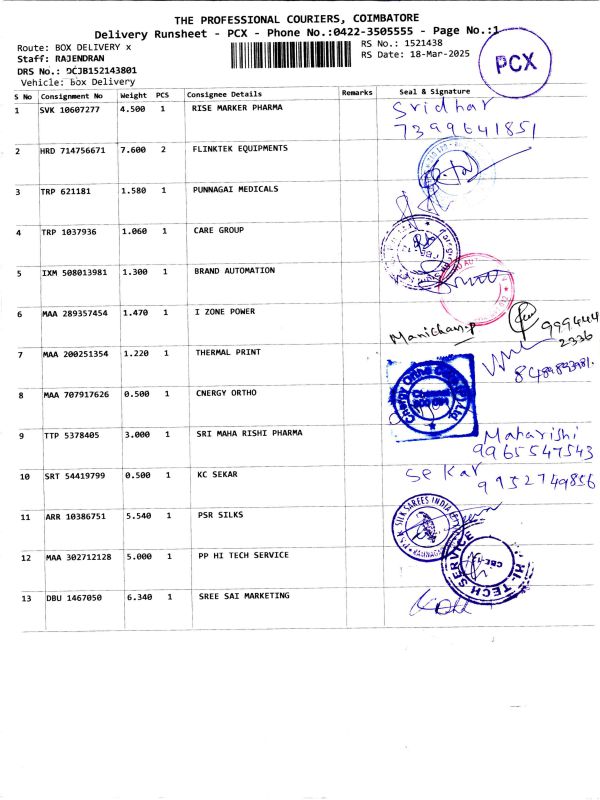 THE PROFESSIONAL COURIERS, COIMBATORE
Delivery Runsheet - PCX - Phone No.:0422-3505555 - Page No.:1
Route: BOX DELIVERY x
RS No.: 1521438
Staff: RAJENDRAN
RS Date: 18-Mar-2025
DRS No.: DCJB152143801
Vehicle: Box Delivery
PCX
S No Consignment No Weight PCS Consignee Details Remarks Seal & Signature
1 SVK 10607277 4.500 1 RISE MARKER PHARMA Sridhar
7399641851
2 HRD 714756671 7.600 2 FLINKTEK EQUIPMENTS
3 TRP 621181 1.580 1 PUNNAGAI MEDICALS
4 TRP 1037936 1.060 1 CARE GROUP
5 IXM 508013981 1.300 1 BRAND AUTOMATION
6 MAA 289357454 1.470 1 I ZONE POWER
999444
2336
7 MAA 200251354 1.220 1 THERMAL PRINT
8 MAA 707917626 0.500 1 CNERGY ORTHO
Chennai
9 TTP 5378405 3.000 1 SRI MAHA RISHI PHARMA Maharishi
9965547543
10 SRT 54419799 0.500 1 KC SEKAR Sekar
9952749856
11 ARR 10386751 5.540 1 PSR SILKS
SILK SAREES INDIA
12 MAA 302712128 5.000 1 PP HI TECH SERVICE
HI. TECH SERVICE
13 DBU 1467050 6.340 1 SREE SAI MARKETING